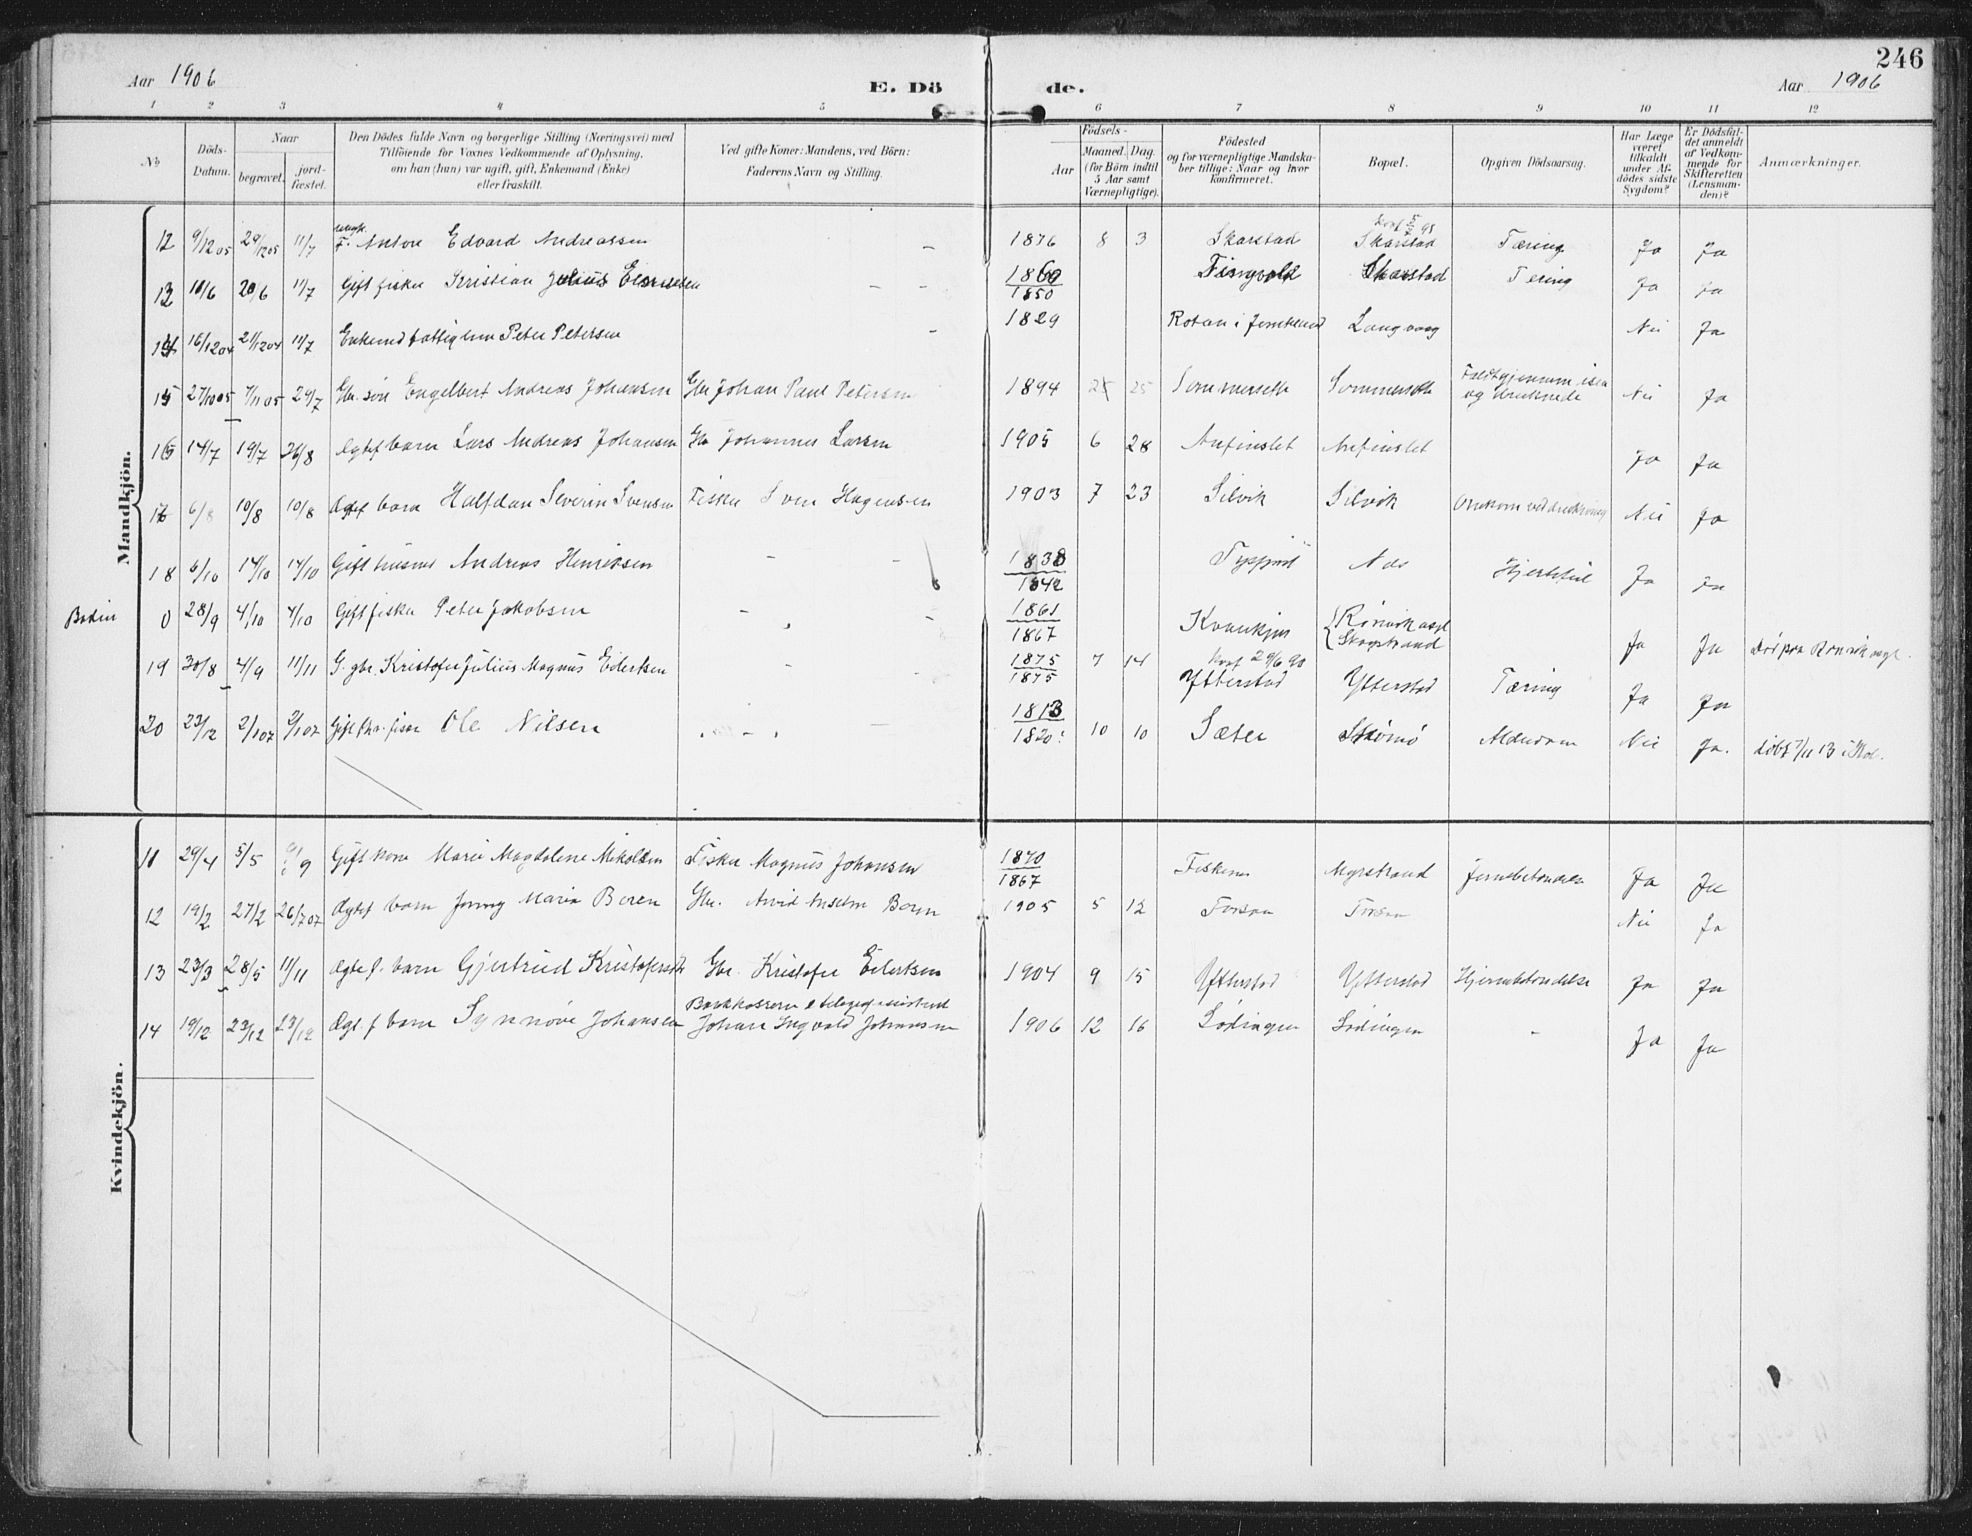 Aar 1906
E. Dö
de.
Aar 1906
246
1 2 3 4 5 6 7 8 9 10 11 12
No
Döds-Datum.
Naar
begravet.
jord-fæstet.
Den Dödes fulde Navn og borgerlige Stilling (Næringsvei) med
Tilföiende for Voxnes Vedkommende af Oplysning,
om han (hun) var ugift, gift, Enkemand (Enke)
eller fraskilt.
Ved gifte Koner: Mandens, ved Börn:
Faderens Navn og Stilling.
Födsels-
Aar
Maaned. Dag.
(for Börn indtil
5 Aar samt
Værnepligtige).
Födested
og for værnepligtige Mandska-
ber tillige: Naar og hvor
konfirmeret.
Bopæl.
Opgiven Dödsaarsag.
Har Læge
været
tilkaldt
under Af-
dödes sidste
Sygdom?
Er Dödsfal-
det anmeldt
af Vedkom-
mende for
Skifteretten
(Lensman-
den)?
Anmærkninger.
Mandkjön.
12 9/12 05 29/12 05 11/7 F. Antore Edvard Andreassen – 1876 8 3 Skarstad Skarstad Tæring Ja Ja
13 10/6 20/6 11/7 Gift fisker Kristian Julius – – 1860 1850 Skarstad Tæring Ja Ja
14 16/12 04 21/12 04 11/7 Enkemd fattiglem Peter Petersen – 1829 Langvaag Nei Ja
15 27/10 05 7/11 05 29/7 Gbr. søn Engelbert Andreas Johansen Gbr Johan Paul Petersen 1894 25 Sommerseth Sommerseth Faldt gjennem isen og druknede Nei Ja
16 14/7 19/7 26/8 Ægtef barn Lars Andreas Johansen Gbr Johannes Larsen 1905 6 28 Anfinslet Anfinslet Ja Ja
17 6/8 10/8 10/8 Ægtef barn Halfdan Severin Svensen Fisker Sven Hagensen 1903 7 23 Silvik Silvik Omkom ved drukning Nei Ja
18 6/10 14/10 14/10 Gift husmd Andreas Henriksen – 1838 1842 Tysfjord Nes Hjertefeil Ja Ja
Bodin 0 28/9 4/10 4/10 Gift fisker Peter Jakobsen – – 1861 1867 Rønvik asyl Skogstrand Ja Ja Død paa Rønvik asyl.
19 30/8 4/9 11/11 G. gbr. Kristofer Julius Magnus Eilertsen – 1875 1875 7 14 Konf 29/6 90 Ytterstad Ytterstad Tæring Ja Ja
20 23/12 2/1 07 2/1 07 Gift Ole Nilsen – – 1813 1820: 10 10 Sæter Alderdom Nei Ja. døbt 7/11 13 i
Kvindekjön.
11 29/4 5/5 9 Gift kone Marie Magdalene Nikolsen Fisker Magnus Johansen 1870 1867 Fiskenes Myrstrand Ja Ja
12 19/2 27/2 26/7 07 Ægtef barn Jenny Marie Boren Gbr. Arvid Anselm Boren 1905 5 12 Forsaa Forsaa Nei Ja
13 23/3 28/5 11/11 Ægtef. barn Gjertrud Kristofersdtr Gbr. Kristofer Eilertsen 1904 9 15 Ytterstad Ytterstad Hjernebetændelse Ja Ja
14 19/12 23/12 23/12 Ægte f barn Synnøve Johansen Bankkasserer & Johan Ingvald Johansen 1906 12 16 Lødingen Lødingen – Ja Ja